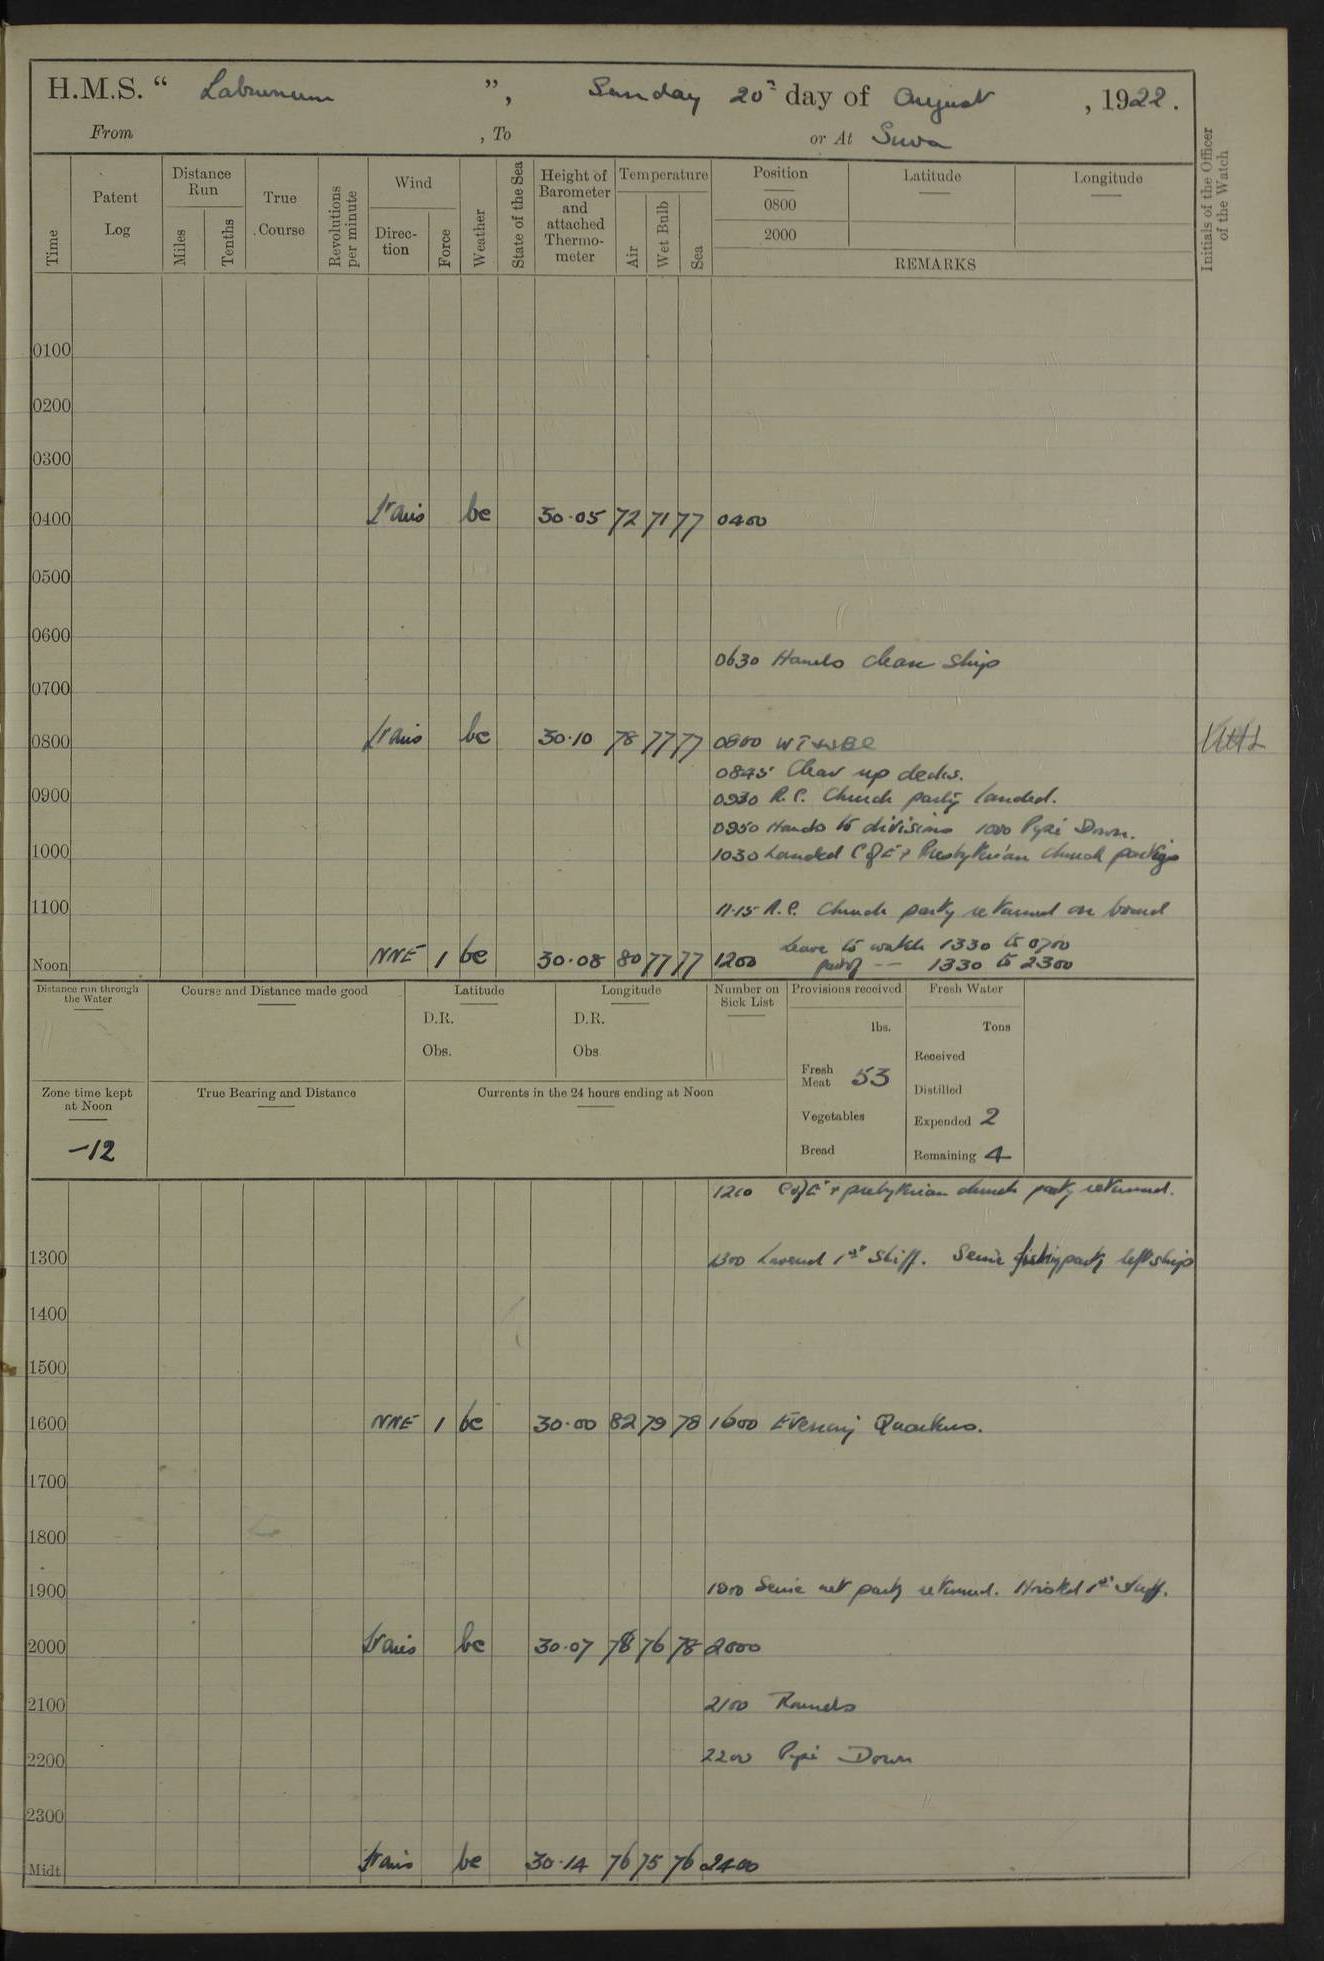 H.M.S. “ Labrunum ”, Sunday 20th day of August, 1922.
From , To or At Suva
Time
Patent Log
Distance Run
Miles
Tenths
True Course
Revolutions per minute
Wind
Direction
Force
Weather
State of the Sea
Height of Barometer and attached Thermometer
Temperature
Air
Wet Bulb
Sea
Position Latitude Longitude
0800
2000
REMARKS
Initials of the Officer of the Watch
0100
0200
0300
0400 Lt airs bc 30.05 72 71 77 0400
0500
0600
0630 Hands clean ship
0700
0800 Lt airs bc 30.10 78 77 77 0800
0845 Clear up decks.
0900 0930 R.C. Church party landed.
0950 Hands to divisions 1000 Pipe Down.
1000 1030 Landed C of E & Presbyterian church partys
1100 11.15 R.C. Church party returned on board
Leave to watch 1330 to 0700
Noon NNE 1 bc 30.08 80 77 77 1200 part of -- 1330 to 2300
Distance run through the Water
Course and Distance made good
Latitude
D.R.
Obs.
Longitude
D.R.
Obs.
Number on Sick List
Provisions received
lbs.
Fresh Meat 53
Vegetables
Bread
Fresh Water
Tons
Received
Distilled
Expended 2
Remaining 4
Zone time kept at Noon
-12
True Bearing and Distance
Currents in the 24 hours ending at Noon
1210 C of E & presbyterian church party returned.
1300 1300 Lowered 1st Skiff. Seine fishing party left ship
1400
1500
1600 NNE 1 bc 30.00 82 79 78 1600 Evening Quarters.
1700
1800
1900 Seine net party returned. Hoisted 1st skiff.
2000 Lt airs bc 30.07 78 76 78 2000
2100 2100 Rounds
2200 2200 Pipe Down
2300
Midt Lt airs bc 30.14 76 75 76 2400